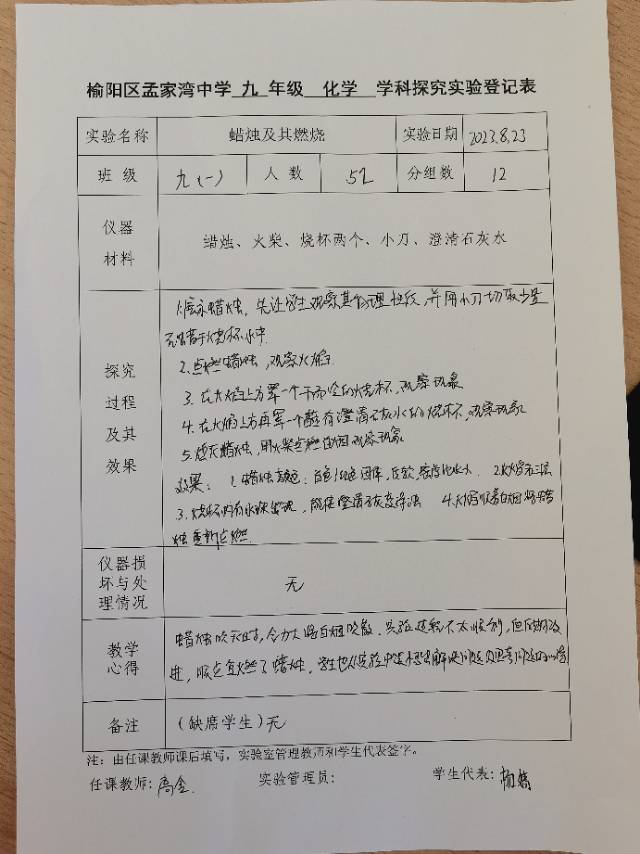 榆阳区孟家湾中学 九 年级 化学 学科探究实验登记表
实验名称 蜡烛及其燃烧 实验日期 2023.8.23
班 级 九(一) 人 数 52 分组数 12
仪器
材料
蜡烛、火柴、烧杯两个、小刀、澄清石灰水
探究
过程
及其
效果
蜡烛,先让学生观察其物理性质,并用小刀切取少量
烧杯水中
2.点燃蜡烛,观察火焰
3.在火焰上方罩一个干而冷的烧杯,观察现象
4.在火焰上方再罩一个蘸有澄清石灰水的烧杯,观察现象
5.熄灭蜡烛,用火柴点燃白烟观察现象
效果: 1.蜡烛 固体, 密度比水小 2.火焰分三层
3.烧杯内有水珠出现, 澄清石灰水 4.火焰 白烟将蜡
烛重新点燃
仪器损
坏与处
理情况
无
教学
心得
蜡烛吹灭时, 白烟吹散,实验 不太顺利,但
进, 点燃了蜡烛,学生也从实验中 解决问题及思考问题的
备注 (缺席学生)无
注:由任课教师课后填写,实验室管理教师和学生代表签字。
任课教师: 高金 实验管理员: 学生代表: 杨